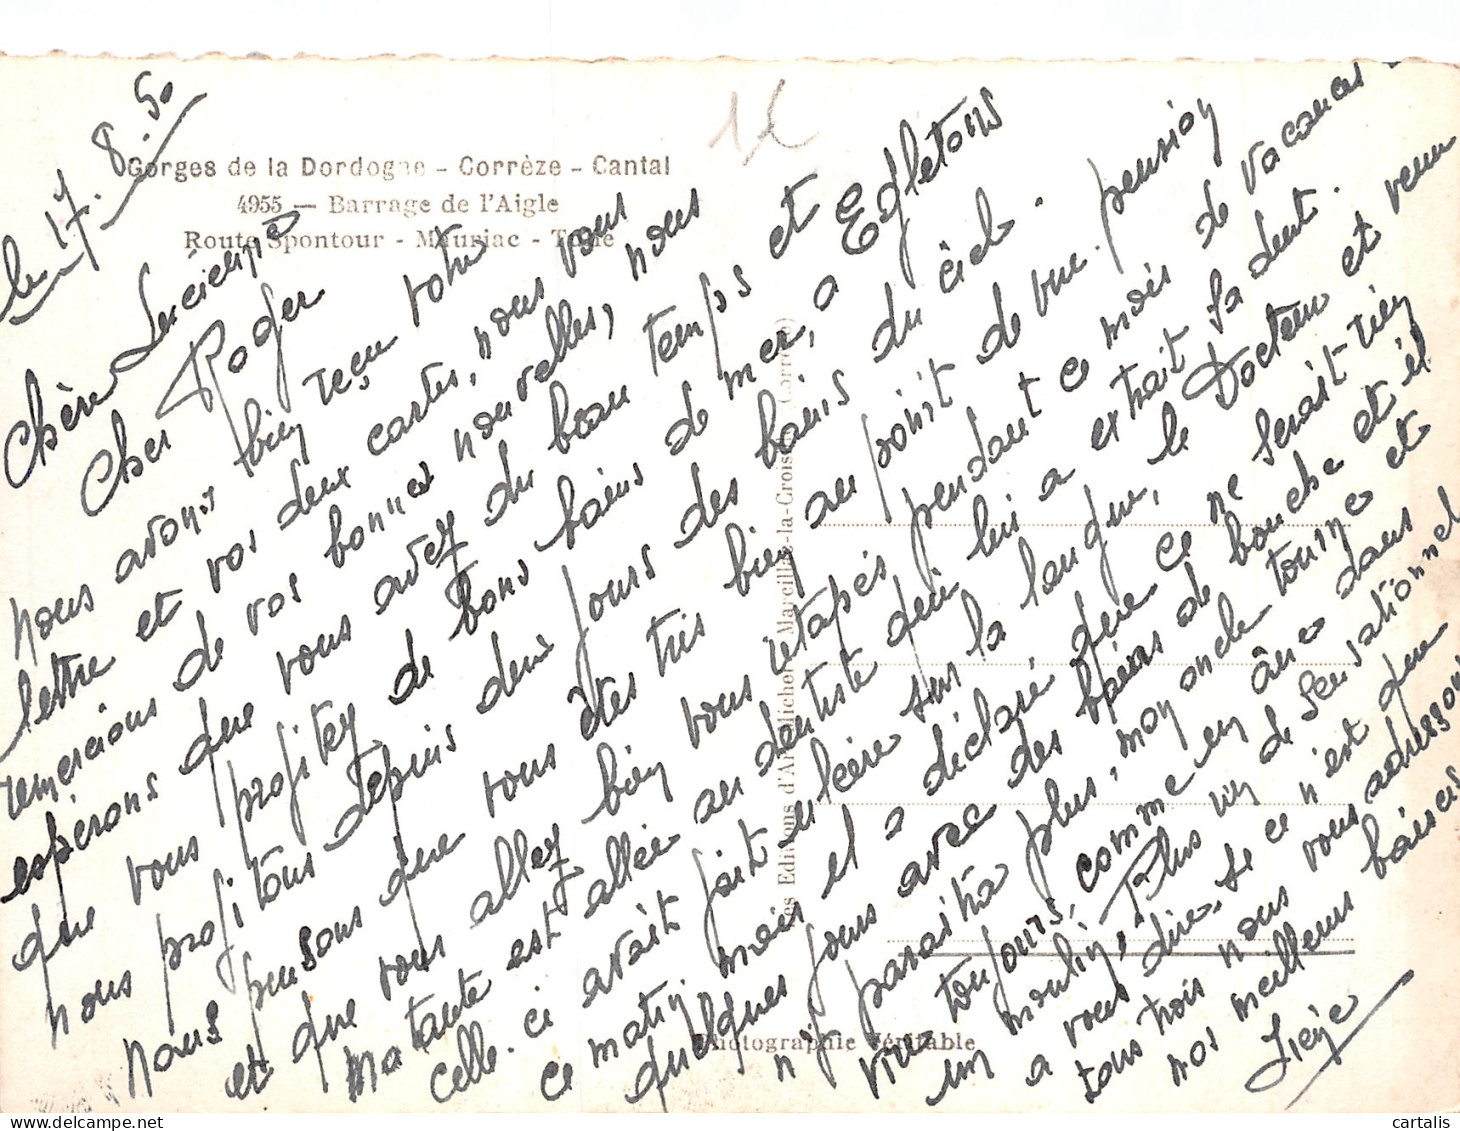 le 17.8.50
1€
Gorges de la Dordogne - Corrèze - Cantal
4955 — Barrage de l'Aigle
Route Spontour - Mauriac - Tulle
Chère Lucienne
Cher Roger
Nous avons bien reçu votre
lettre et vos deux cartes, nous vous
remercions de vos bonnes nouvelles, nous
espérons que vous avez du beau temps et
que vous profitez de bons bains de mer, a Egletons
nous profitons depuis deux jours des bains du ciel.
Nous pensons que vous êtes très bien au point de vue pension
et que vous allez bien vous retapés pendant ce mois de vacances
Ma tante est allée au dentiste qui lui a extrait sa dent.
celle-ci avait fait ulcère sur la langue, le Docteur est venu
ce matin et a déclaré que ce ne serait rien
quelques jours avec des bains de bouche et il
n'y paraitra plus, mon oncle tourne et
vire toujours, comme un âne dans
un moulin, Plus rien de sensationnel
a vous dire, si ce n'est que
tous trois nous vous adressons
nos meilleurs baisers
Les Editions d'Art Michel Marcillac-la-Croisille (Corrèze)
Photographie Véritable
cartalis